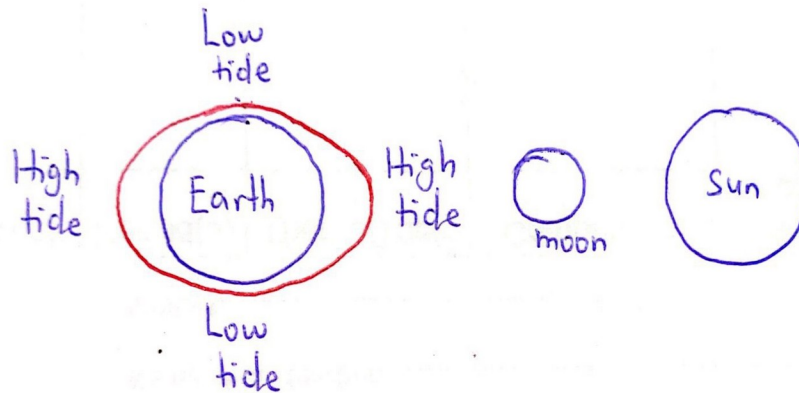 Low
tide
High
tide
Earth
High
tide
moon
Sun
Low
tide